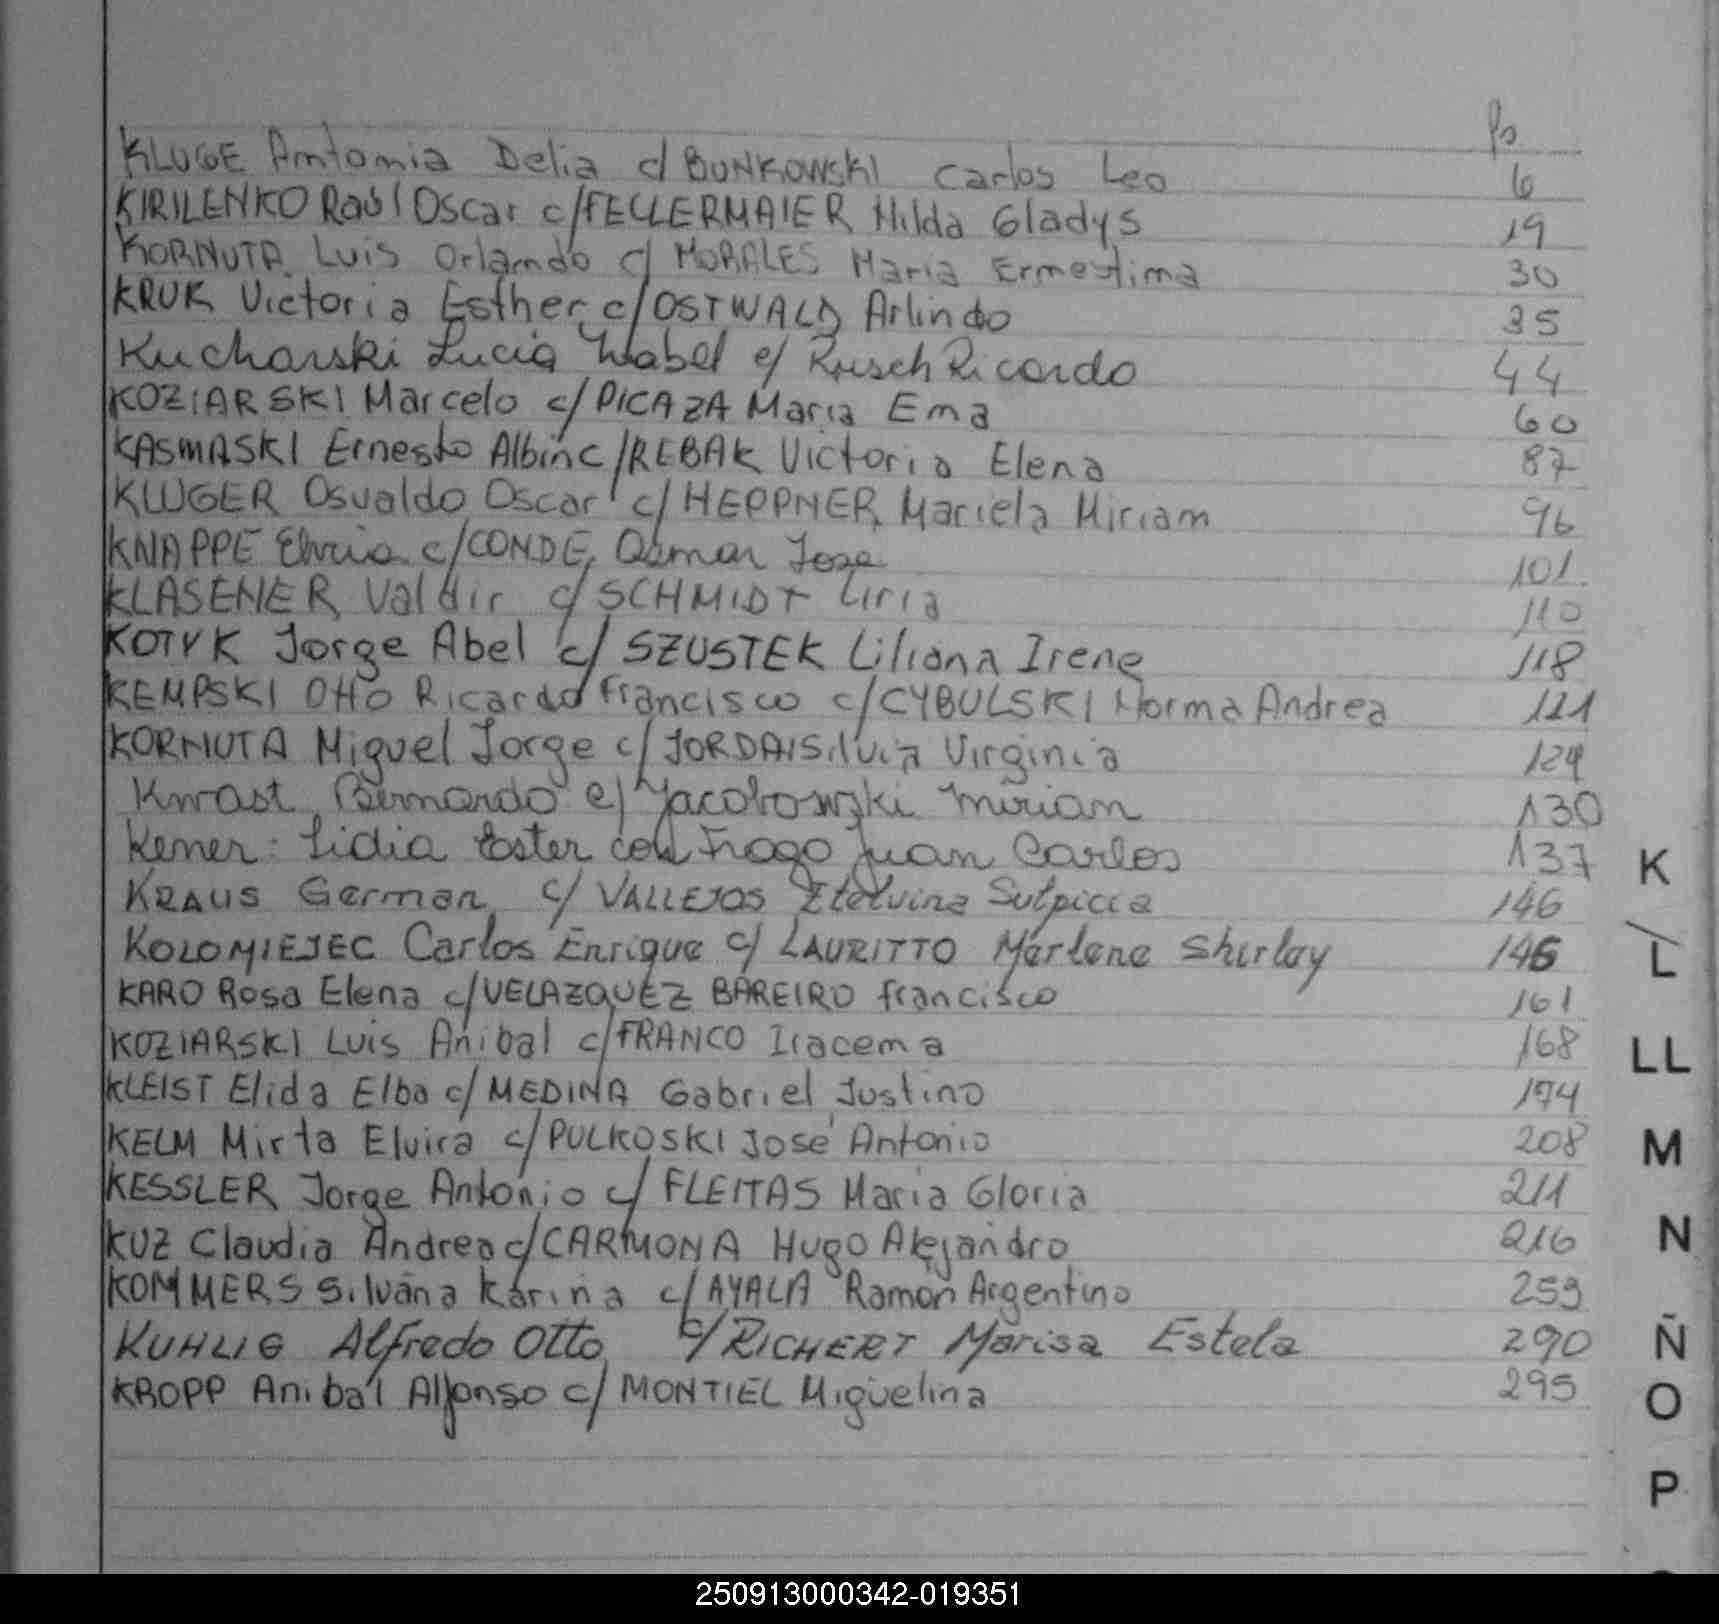 Fs.
KLUGE Antonia Delia c/ BUNKOWSKI Carlos Leo 6
KIRILENKO Raúl Oscar c/ FELLERMAIER Hilda Gladys 19
KORNUTA Luis Orlando c/ MORALES Maria Ernestina 30
KRUK Victoria Esther c/ OSTWALD Arlindo 35
Kucharski Lucia Isabel c/ Rusch Ricardo 44
KOZIARSKI Marcelo c/ PICAZA Maria Ema 60
KASMASKI Ernesto Albin c/ REBAK Victoria Elena 87
KLUGER Osvaldo Oscar c/ HEPPNER Mariela Miriam 96
KNAPPE c/ CONDE, Osmar Jose 101
KLASENER Valdir c/ SCHMIDT Liria 110
KOTYK Jorge Abel c/ SZUSTEK Liliana Irene 118
KEMPSKI Otto Ricardo Francisco c/ CYBULSKI Norma Andrea 121
KORNUTA Miguel Jorge c/ JORDAI Silvia Virginia 124
Kwast Bernardo c/ Jacobowski Miriam 130
Kener: Lidia Ester con Frago Juan Carlos 137
KRAUS German c/ VALLEJOS Etelvina Sulpicia 146
KOLOMIEJEC Carlos Enrique c/ LAURITTO Marlene Shirley 146
KARO Rosa Elena c/ VELAZQUEZ BAREIRO Francisco 161
KOZIARSKI Luis Anibal c/ FRANCO Iracema 168
KLEIST Elida Elba c/ MEDINA Gabriel Justino 174
KELM Mirta Elvira c/ PULKOSKI José Antonio 208
KESSLER Jorge Antonio c/ FLEITAS Maria Gloria 211
KUZ Claudia Andrea c/ CARMONA Hugo Alejandro 216
KOMMERS Silvana Karina c/ AYALA Ramon Argentino 259
KUHLIG Alfredo Otto c/ RICHERT Marisa Estela 290
KROPP Anibal Alfonso c/ MONTIEL Miguelina 295
K
L
LL
M
N
Ñ
O
P
250913000342-019351